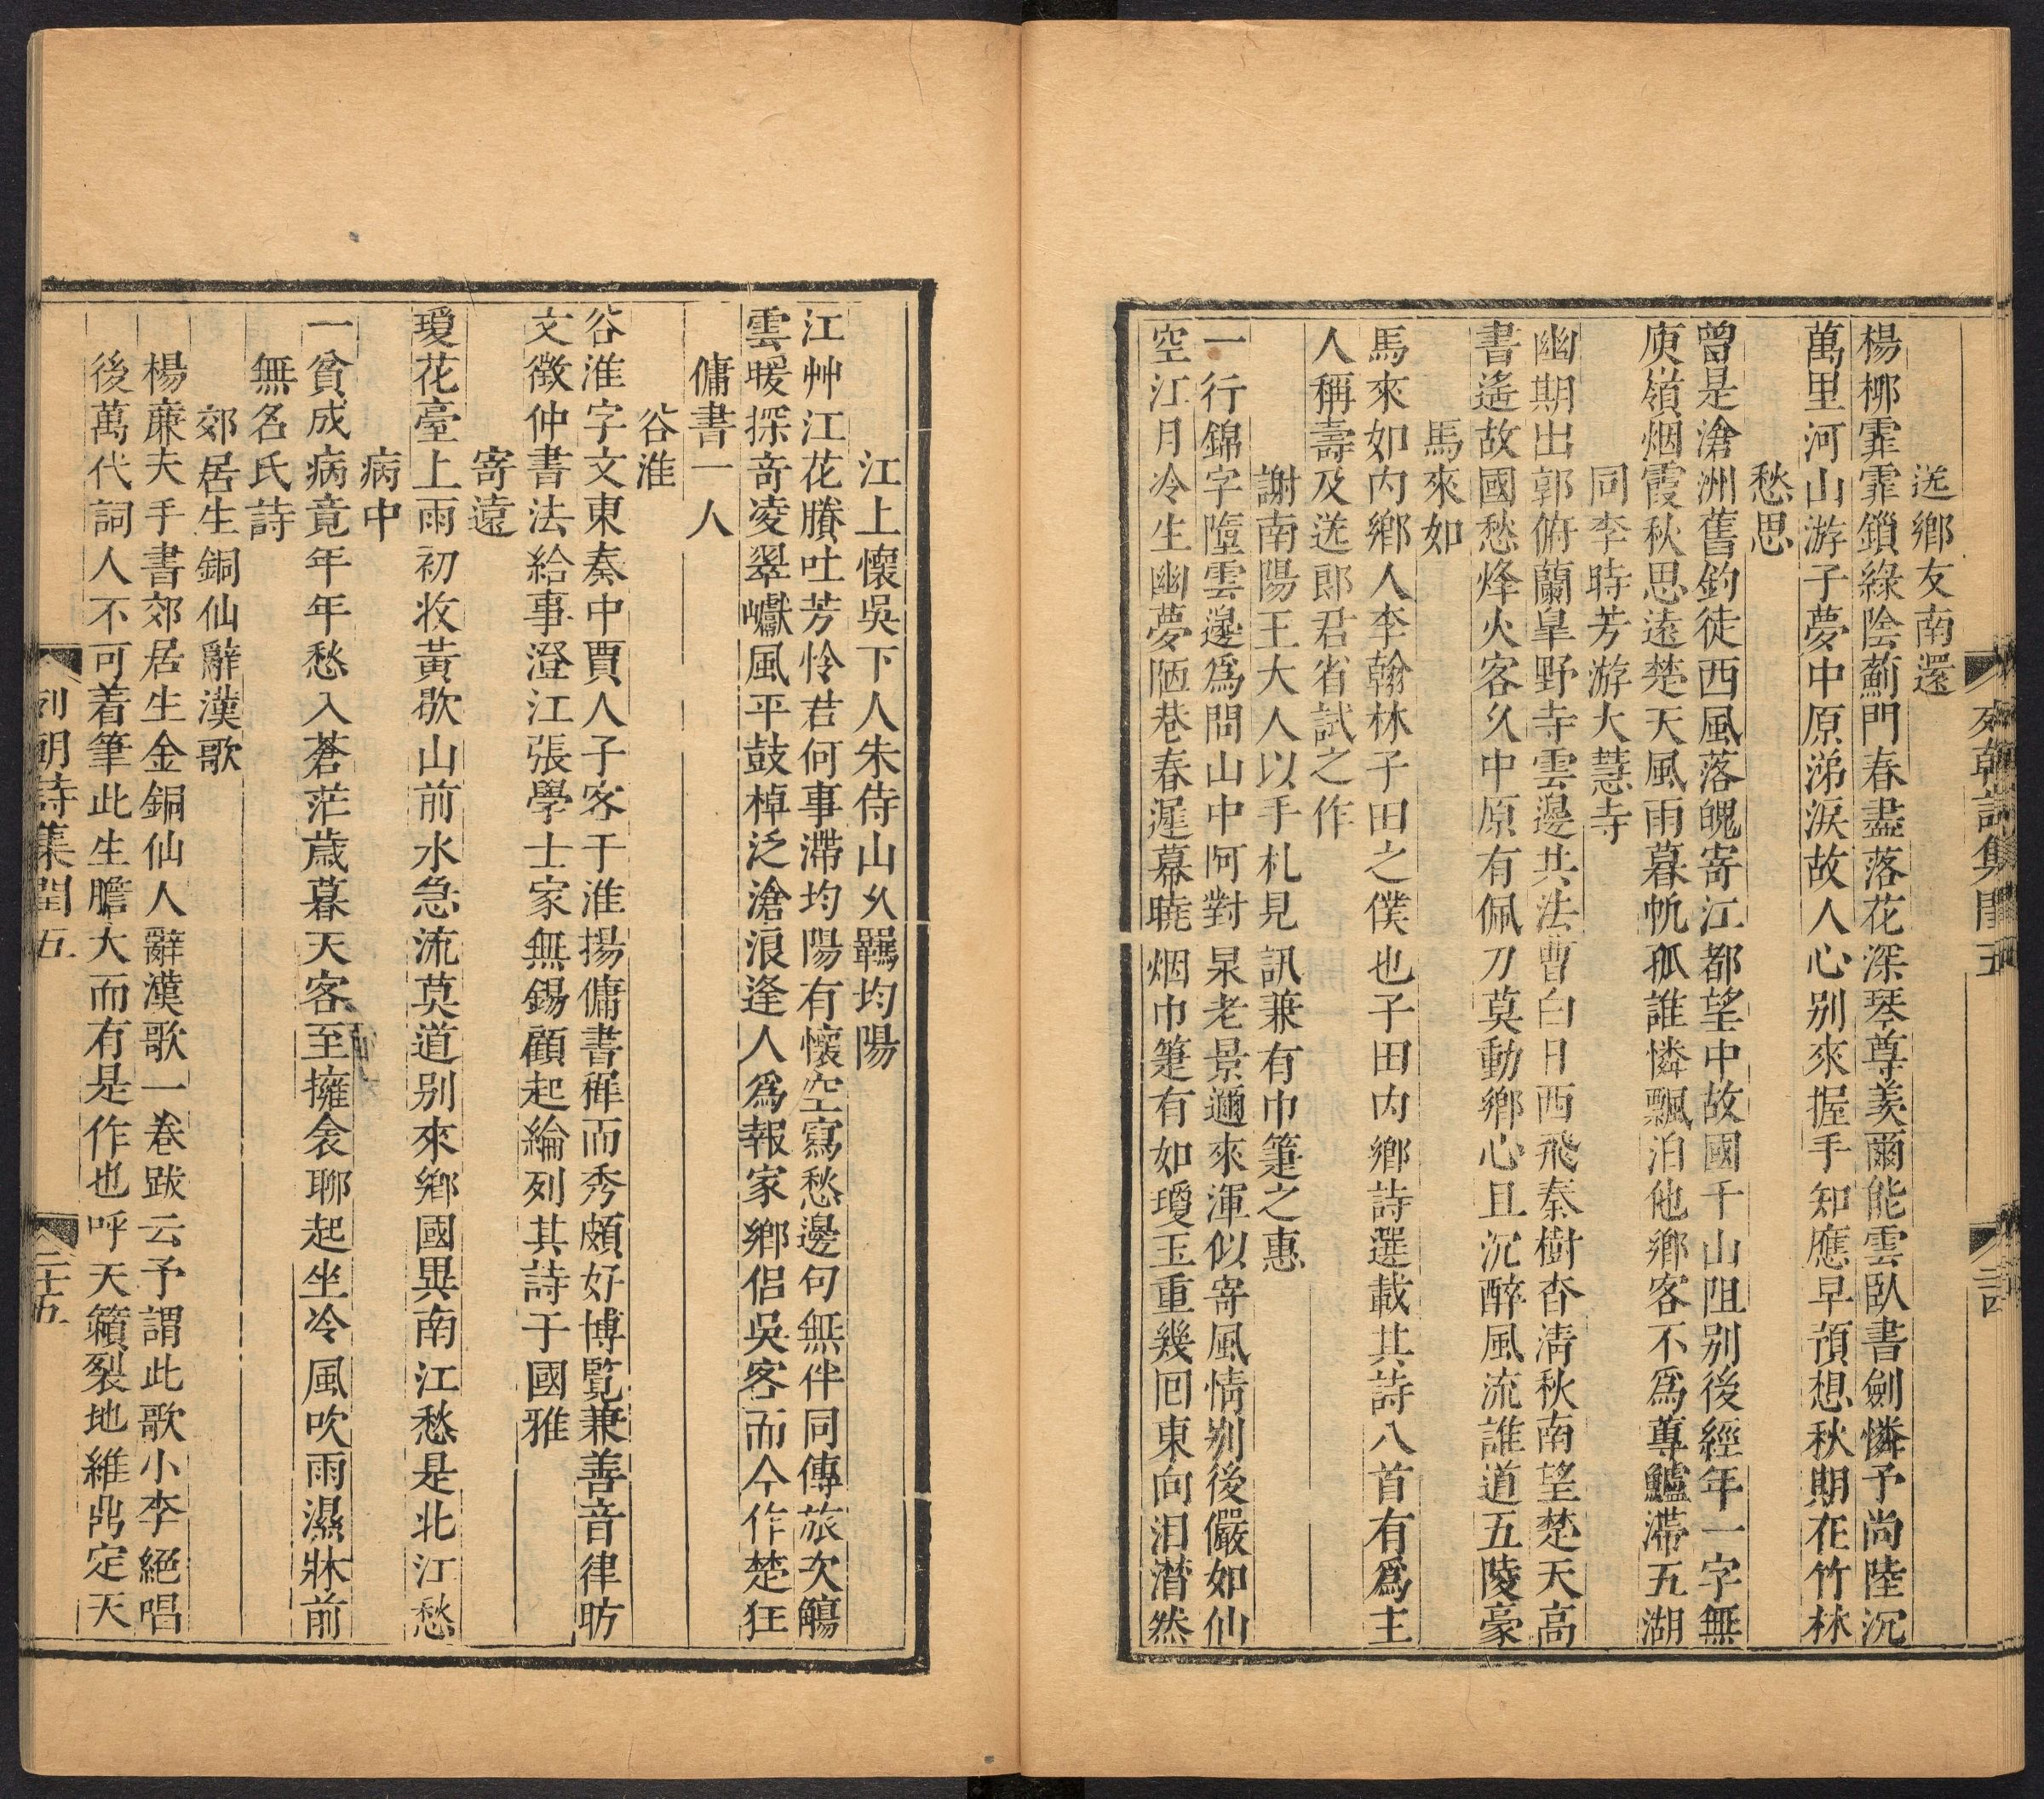 列朝詩集閏五
送鄉友南還
楊柳霏霏鎖綠陰薊門春盡落花深琴尊羨爾能雲臥書劍憐予尚陸沉
萬里河山游子夢中原涕淚故人心别來握手知應早預想秋期在竹林
愁思
曾是滄洲舊釣徒西風落魄寄江都望中故國千山阻别後經年一字無
庾嶺烟霞秋思遠楚天風雨暮帆孤誰憐飄泊他鄉客不爲蓴鱸滯五湖
同李時芳游大慧寺
幽期出郭俯蘭臯野寺雲邊共法曹白日西飛秦樹杳清秋南望楚天高
書遙故國愁烽火客久中原有佩刀莫動鄉心且沉醉風流誰道五陵豪
馬來如
馬來如內鄉人李翰林子田之僕也子田內鄉詩選載其詩八首有爲主
人稱壽及送郎君省試之作
謝南陽王大人以手札見訊兼有巾箑之惠
一行錦字墮雲邊爲問山中阿對泉老景邇來渾似寄風情别後儼如仙
空江月冷生幽夢陋巷春遲幕曉烟巾箑有如瓊玉重幾囘東向泪潸然
江上懷吳下人朱侍山久羈均陽
江艸江花賸吐芳怜君何事滯均陽有懷空寫愁邊句無伴同傳旅次觴
雲暖探奇凌翠巘風平鼓棹泛滄浪逢人爲報家鄉侶吳客而今作楚狂
傭書一人
谷淮
谷淮字文東秦中賈人子客于淮揚傭書穉而秀頗好博覽兼善音律昉
文徵仲書法給事澄江張學士家無錫顧起綸列其詩于國雅
寄遠
瓊花臺上雨初收黃歇山前水急流莫道别來鄉國異南江愁是北江愁
病中
一貧成病竟年年愁入蒼茫歲暮天客至擁衾聊起坐冷風吹雨濕牀前
無名氏詩
郊居生銅仙辭漢歌
楊亷夫手書郊居生金銅仙人辭漢歌一卷跋云予謂此歌小李絕唱
後萬代詞人不可着筆此生膽大而有是作也呼天籟裂地維鼎定天
列朝詩集閏五
二十五